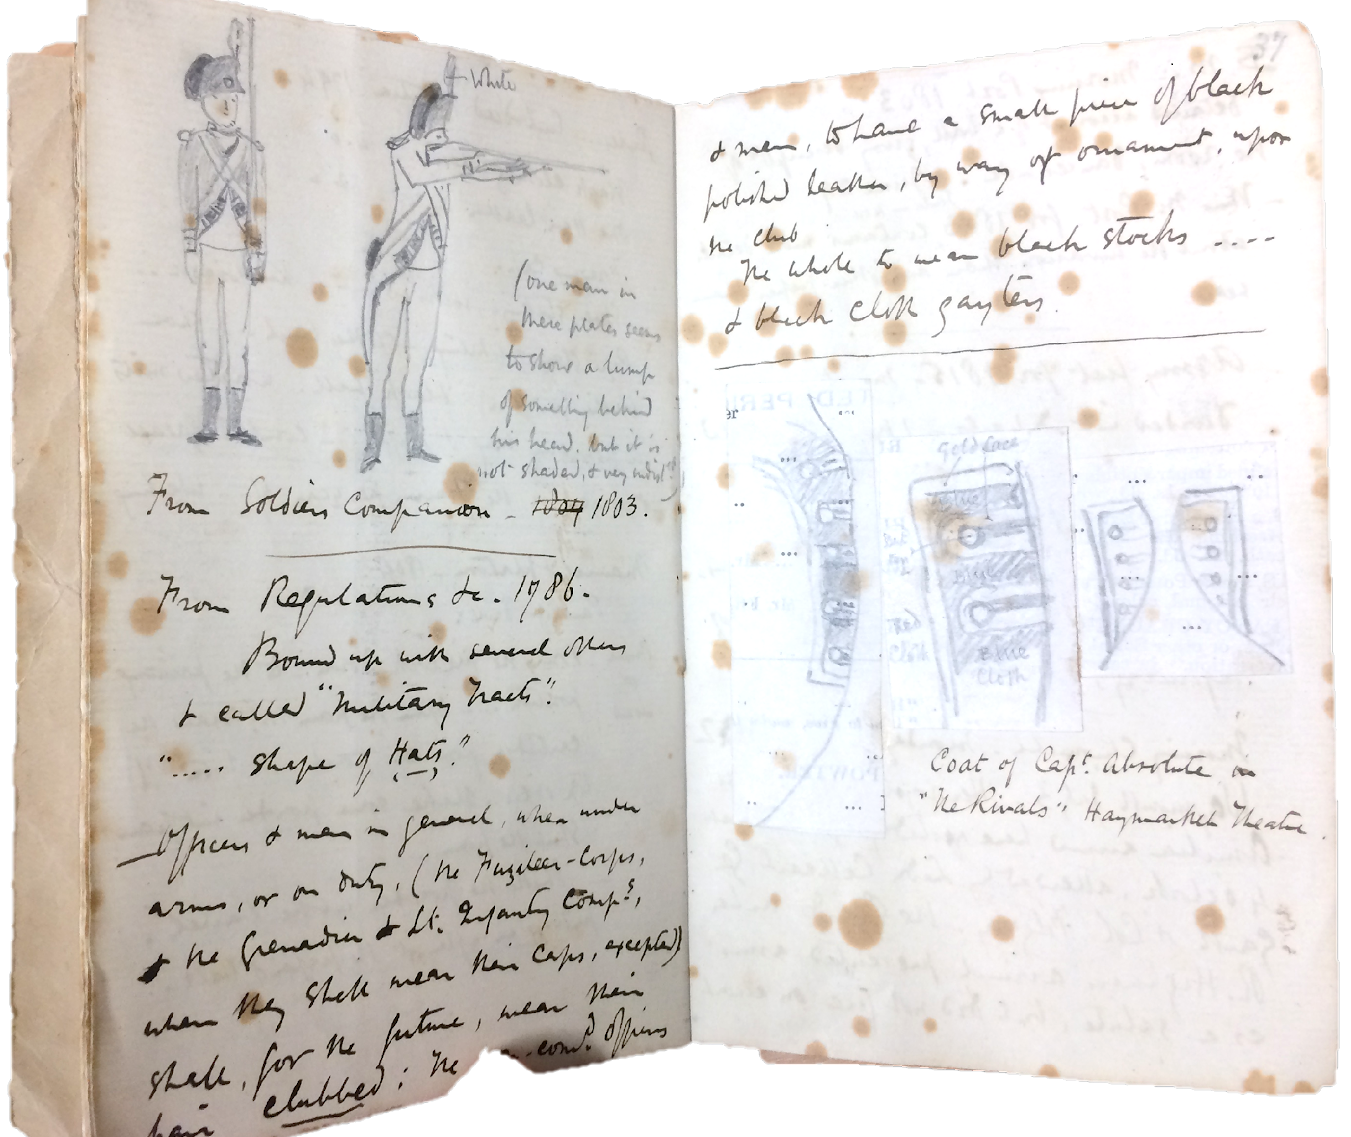 + White
(one man in
these plates seems
to show a lump
of something behind
his head, but it is
not shaded, & very indist
From Soldiers Companion - 1804 1803.
From Regulations &c. 1786.
Bound up with several others
& called "Military Tracts".
"..... shape of Hats".
Officers & men in general, when under
arms, or on duty, (the Fuzileer-Corps,
& the Grenadier & Lt. Infantry Comps,
when they shall wear their Caps, excepted)
shall, for the future, wear their
hair clubbed; The -comd. officers
37
& men, to have a small piece of black
polished leather, by way of ornament, upon
the club
The whole to wear black stocks ....
& black cloth gayters.
Gold Lace
Blue
Blue
Cloth
Coat of Capt. Absolute in
"The Rivals" Haymarket Theatre.